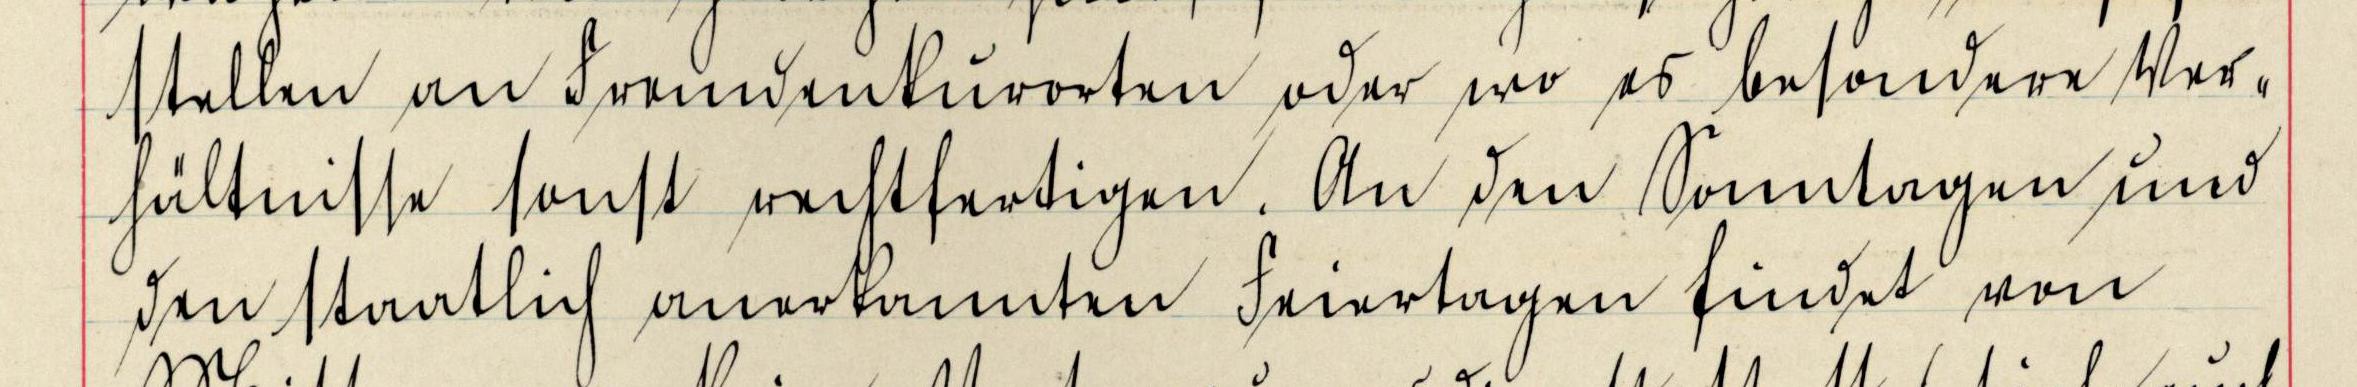 stellen an Fremdenkurorten oder wo es besondere Ver-
hältnisse sonst rechtfertigen. An den Sonntagen und
den staatlich anerkannten Feiertagen findet von